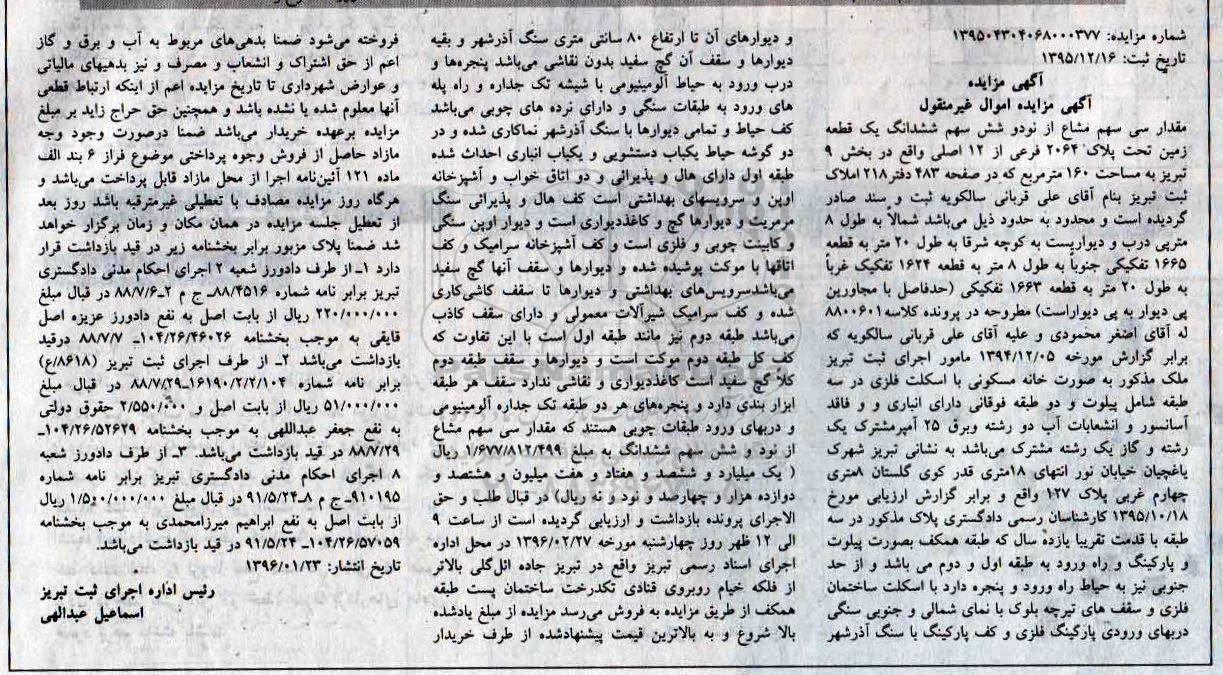 شماره مزایده: ۱۳۹۵۰۴۳۰۴۰۶۸۰۰۰۳۷۷
تاریخ ثبت: ۱۳۹۵/۱۲/۱۶
آگهی مزایده
آگهی مزایده اموال غیرمنقول
مقدار سی سهم مشاع از نودو شش سهم ششدانگ یک قطعه
زمین تحت پلاک ۲۰۶۴ فرعی از ۱۲ اصلی واقع در بخش ۹
تبریز به مساحت ۱۶۰ مترمربع که در صفحه ۴۸۳ دفتر۲۱۸ املاک
ثبت تبریز بنام آقای علی قربانی سالکویه ثبت و سند صادر
گردیده است و محدود به حدود ذیل می‌باشد شمالاً به طول ۸
متریی درب و دیواریست به کوچه شرقا به طول ۲۰ متر به قطعه
۱۶۶۵ تفکیکی جنوباً به طول ۸ متر به قطعه ۱۶۲۴ تفکیک غرباً
به طول ۲۰ متر به قطعه ۱۶۶۳ تفکیکی (حدفاصل با مجاورین
پی دیوار به پی دیواراست) مطروحه در پرونده کلاسه۸۸۰۰۶۰۱
له آقای اضغر محمودی و علیه آقای علی قربانی سالکویه که
برابر گزارش مورخه ۱۳۹۴/۱۲/۰۵ مامور اجرای ثبت تبریز
ملک مذکور به صورت خانه مسکونی با اسکلت فلزی در سه
طبقه شامل پیلوت و دو طبقه فوقانی دارای انباری و و فاقد
آسانسور و انشعابات آب دو رشته وبرق ۲۵ آمپرمشترک یک
رشته و گاز یک رشته مشترک می‌باشد به نشانی تبریز شهرک
یاغچیان خیابان نور انتهای ۱۸متری قدر کوی گلستان ۸متری
چهارم غربی پلاک ۱۲۷ واقع و برابر گزارش ارزیابی مورخ
۱۳۹۵/۱۰/۱۸ کارشناسان رسمی دادگستری پلاک مذکور در سه
طبقه با قدمت تقریبا یازده سال که طبقه همکف بصورت پیلوت
و پارکینگ و راه ورود به طبقه اول و دوم می باشد و از حد
جنوبی نیز به حیاط راه ورود و پنجره دارد با اسکلت ساختمان
فلزی و سقف های تیرچه بلوک با نمای شمالی و جنوبی سنگی
دربهای ورودی پارگینگ فلزی و کف پارکینگ با سنگ آذرشهر
و دیوارهای آن تا ارتفاع ۸۰ سانتی متری سنگ آذرشهر و بقیه
دیوارها و سقف آن گچ سفید بدون نقاشی می‌باشد پنجره‌ها و
درب ورود به حیاط آلومینیومی با شیشه تک جداره و راه پله
های ورود به طبقات سنگی و دارای نرده های چوبی می‌باشد
کف حیاط و تمامی دیوارها با سنگ آذرشهر نماکاری شده و در
دو گوشه حیاط یکباب دستشویی و یکباب انباری احداث شده
طبقه اول دارای هال و پذیرائی و دو اتاق خواب و آشپزخانه
اوپن و سرویسهای بهداشتی است کف هال و پذیرائی سنگ
مرمریت و دیوارها گچ و کاغذدیواری است و دیوار اوپن سنگی
و کابینت چوبی و فلزی است و کف آشپزخانه سرامیک و کف
اتاقها با موکت پوشیده شده و دیوارها و سقف آنها گچ سفید
می‌باشدسرویس‌های بهداشتی و دیوارها تا سقف کاشی‌کاری
شده و کف سرامیک شیرآلات معمولی و دارای سقف کاذب
می‌باشد طبقه دوم نیز مانند طبقه اول است با این تفاوت که
کف کل طبقه دوم موکت است و دیوارها و سقف طبقه دوم
کلا گچ سفید است کاغذدیواری و نقاشی ندارد سقف هر طبقه
ابزار بندی دارد و پنجره‌های هر دو طبقه تک جداره آلومینیومی
و دربهای ورود طبقات چوبی هستند که مقدار سی سهم مشاع
از نود و شش سهم ششدانگ به مبلغ ۱/۶۷۷/۸۱۲/۴۹۹ ریال
( یک میلیارد و ششصد و هفتاد و هفت میلیون و هشتصد و
دوازده هزار و چهارصد و نود و نه ریال) در قبال طلب و حق
الاجرای پرونده بازداشت و ارزیابی گردیده است از ساعت ۹
الی ۱۲ ظهر روز چهارشنبه مورخه ۱۳۹۶/۰۲/۲۷ در محل اداره
اجرای اسناد رسمی تبریز واقع در تبریز جاده ائل‌گلی بالاتر
از فلکه خیام روبروی قنادی تکدرخت ساختمان پست طبقه
همکف از طریق مزایده به فروش می‌رسد مزایده از مبلغ یادشده
بالا شروع و به بالاترین قیمت پیشنهادشده از طرف خریدار
فروخته می‌شود ضمنا بدهی‌های مربوط به آب و برق و گاز
اعم از حق اشتراک و انشعاب و مصرف و نیز بدهیهای مالیاتی
و عوارض شهرداری تا تاریخ مزایده اعم از اینکه ارتباط قطعی
آنها معلوم شده یا نشده باشد و همچنین حق حراج زاید بر مبلغ
مزایده برعهده خریدار می‌باشد ضمنا درصورت وجود وجه
مازاد حاصل از فروش وجوه پرداختی موضوع فراز ۶ بند الف
ماده ۱۲۱ آئین‌نامه اجرا از محل مازاد قابل پرداخت می‌باشد و
هرگاه روز مزایده مصادف با تعطیلی غیرمترقبه باشد روز بعد
از تعطیل جلسه مزایده در همان مکان و زمان برگزار خواهد
شد ضمنا پلاک مزبور برابر بخشنامه زیر در قید بازداشت قرار
دارد ۱ـ از طرف دادورز شعبه ۲ اجرای احکام مدنی دادگستری
تبریز برابر نامه شماره ۸۸/۴۵۱۶ـ ج م ۲ـ۸۸/۷/۶ در قبال مبلغ
۲۲۰/۰۰۰/۰۰۰ ریال از بابت اصل به نفع دادورز عزیزه اصل
قایقی به موجب بخشنامه ۱۰۴/۲۶/۴۶۰۲۶ـ ۸۸/۷/۷ درقید
بازداشت می‌باشد ۲ـ از طرف اجرای ثبت تبریز (۸۶۱۸/ع)
برابر نامه شماره ۱۶۱۹۰/۲/۲/۱۰۴ـ۸۸/۷/۲۹ در قبال مبلغ
۵۱/۰۰۰/۰۰۰ ریال از بابت اصل و ۲/۵۵۰/۰۰۰ حقوق دولتی
به نفع جعفر عبداللهی به موجب بخشنامه ۱۰۴/۲۶/۵۲۶۲۹ـ
۸۸/۷/۲۹ در قید بازداشت می‌باشد. ۳ـ از طرف دادورز شعبه
۸ اجرای احکام مدنی دادگستری تبریز برابر نامه شماره
۹۱۰۱۹۵ـ ج م ۸ـ۹۱/۵/۲۴ در قبال مبلغ ۱/۵۰۰/۰۰۰/۰۰۰ ریال
از بابت اصل به نفع ابراهیم میرزامحمدی به موجب بخشنامه
۱۰۴/۲۶/۵۷۰۵۹ـ ۹۱/۵/۲۴ در قید بازداشت می‌باشد.
تاریخ انتشار: ۱۳۹۶/۰۱/۲۳
رئیس اداره اجرای ثبت تبریز
اسماعیل عبدالهی
ParsNamadData